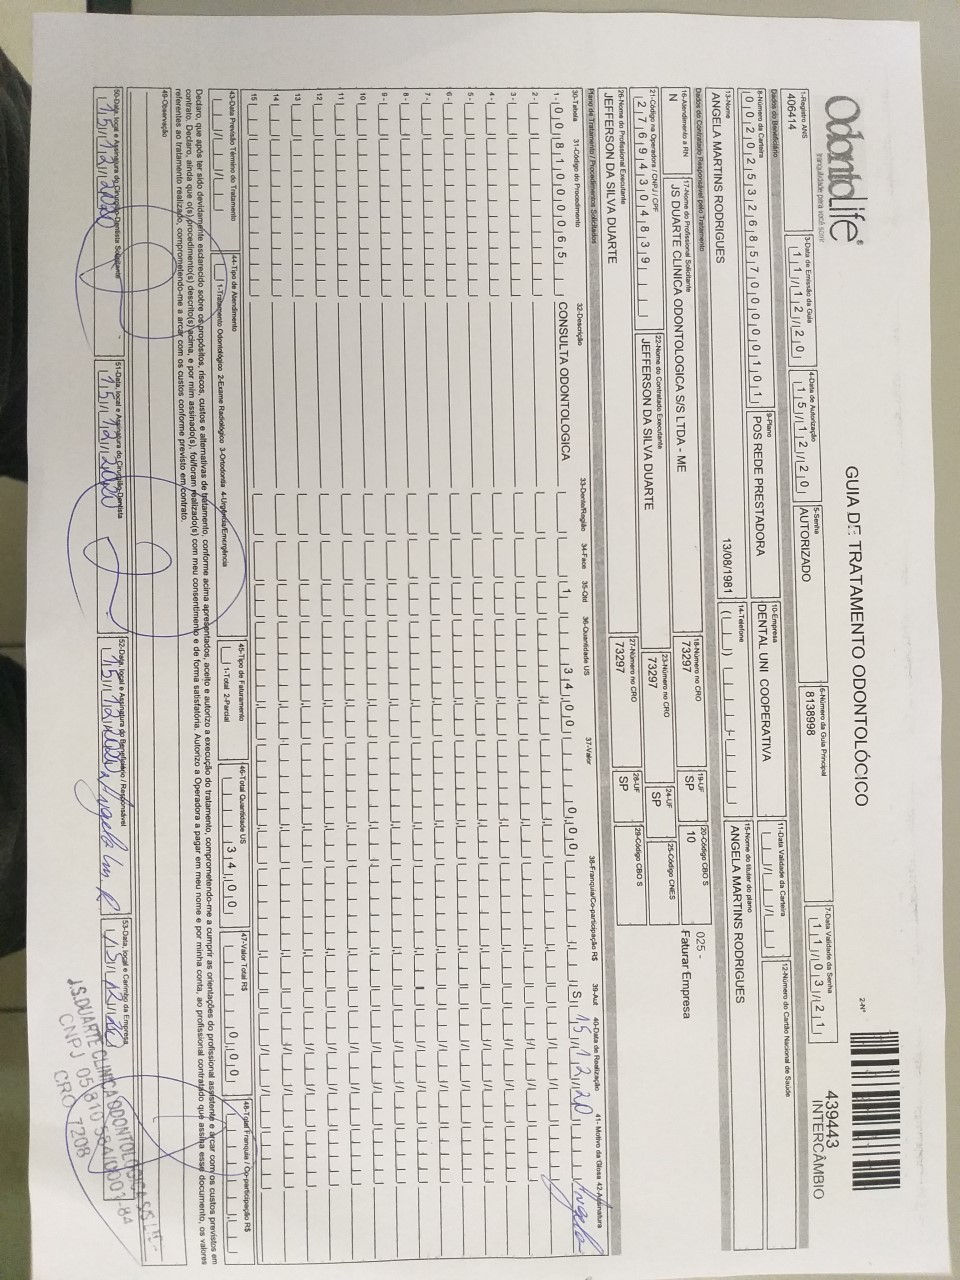 OdontoLife®
tranquilidade para você sorrir
GUIA DE TRATAMENTO ODONTOLÓCICO
2-Nº
439443
INTERCÂMBIO
1-Registro ANS
406414
3-Data de Emissão da Guia
11/12/20
4-Data de Autorização
15/12/20
5-Senha
AUTORIZADO
6-Número da Guia Principal
8138998
7-Data Validade da Senha
11/03/21
Dados do Beneficiário
8-Número da Carteira
00202532685700000101
9-Plano
POS REDE PRESTADORA
10-Empresa
DENTAL UNI COOPERATIVA
11-Data Validade da Carteira
12-Número do Cartão Nacional de Saúde
13-Nome
ANGELA MARTINS RODRIGUES
13/08/1981
14-Telefone
15-Nome do titular do plano
ANGELA MARTINS RODRIGUES
Dados do Contratado Responsável pelo Tratamento
16-Atendimento a RN
N
17-Nome do Profissional Solicitante
JS DUARTE CLINICA ODONTOLOGICA S/S LTDA - ME
18-Número no CRO
73297
19-UF
SP
20-Código CBO S
10
025 -
Faturar Empresa
21-Código na Operadora / CNPJ / CPF
27694304839
22-Nome do Contratado Executante
JEFFERSON DA SILVA DUARTE
23-Número no CRO
73297
24-UF
SP
25-Código CNES
26-Nome do Profissional Executante
JEFFERSON DA SILVA DUARTE
27-Número no CRO
73297
28-UF
SP
29-Código CBO S
Plano de Tratamento / Procedimentos Solicitados
30-Tabela 31-Código do Procedimento 32-Descrição 33-Dente/Região 34-Face 35-Qtd 36-Quantidade US 37-Valor 38-Franquia/Co-participação R$ 39-Aut 40-Data de Realização 41- Motivo da Glosa 42-Assinatura
1- 00 81000065 CONSULTA ODONTOLOGICA 1 34,00 0,00 S 15/12/20 Angela
2 -
3 -
4 -
5 -
6 -
7 -
8 -
9 -
10
11
12
13
14
15
43-Data Previsão Término do Tratamento
44-Tipo de Atendimento
1-Tratamento Odontológico 2-Exame Radiológico 3-Ortodontia 4-Urgência/Emergência
45-Tipo de Faturamento
1-Total 2-Parcial
46-Total Quantidade US
34,00
47-Valor Total R$
0,00
48-Total Franquia / Co-participação R$
Declaro, que após ter sido devidamente esclarecido sobre os propósitos, riscos, custos e alternativas de tratamento, conforme acima apresentados, aceito e autorizo a execução do tratamento, comprometendo-me a cumprir as orientações do profissional assistente e arcar com os custos previstos em
contrato. Declaro, ainda que o(s) procedimento(s) descrito(s) acima, e por mim assinado(s), foi/foram realizado(s) com meu consentimento e de forma satisfatória. Autorizo a Operadora a pagar em meu nome e por minha conta, ao profissional contratado que assina esse documento, os valores
referentes ao tratamento realizado, comprometendo-me a arcar com os custos conforme previsto em contrato.
49-Observação
50-Data, local e Assinatura do Cirurgião-Dentista Solicitante
15/12/2020
51-Data, local e Assinatura do Cirurgião-Dentista
15/12/2020
52-Data, local e Assinatura do Beneficiário / Responsável
15/12/2020 Angela M R
53-Data, local e Carimbo da Empresa
15/12/20
J.S.DUARTE CLINICA ODONTOLOGICA S/S
CRO 7208